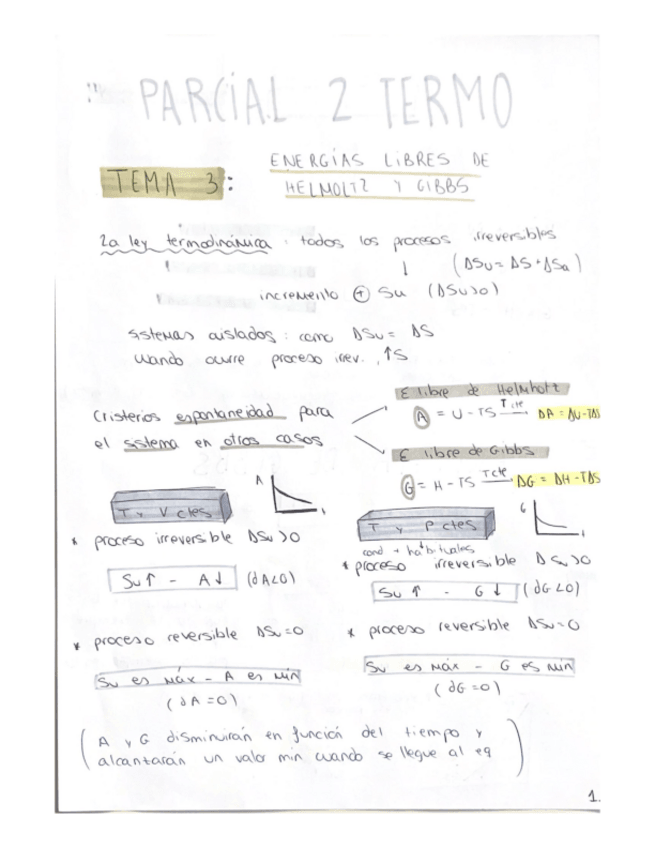 PARCIAL 2 TERMO
TEMA 3: ENERGÍAS LIBRES DE
HELMOLTZ Y GIBBS
2a ley termodinámica: todos los procesos irreversibles
↓ (ΔSu = ΔS + ΔSa)
incremento ⊕ Su (ΔSu>0)
sistemas aislados: como ΔSu = ΔS
cuando ocurre proceso irrev., ↑S
Cristerios espontaneidad para
el sistema en otros casos
E libre de Helmholtz
A = U - TS T cte → ΔA = ΔU-TΔS
E libre de Gibbs
G = H - TS T cte → ΔG = ΔH-TΔS
T y V ctes
A
t
* proceso irreversible ΔSu>0
Su↑ - A↓ (dA<0)
* proceso reversible ΔSu=0
Su es máx - A es mín
(dA=0)
T y P ctes
G
t
cond + habituales
* proceso irreversible ΔSu>0
Su ↑ - G ↓ (dG<0)
* proceso reversible ΔSu=0
Su es máx - G es mín
(dG=0)
(A y G disminuirán en función del tiempo y
alcantarán un valor min cuando se llegue al eq)
1.